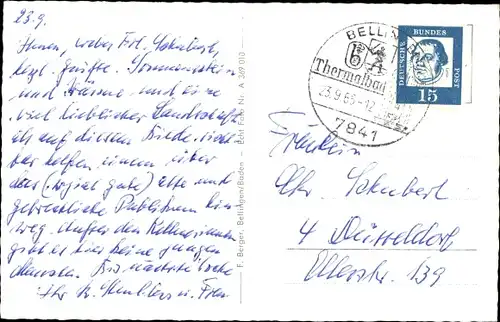 23.9.
Ihnen, liebes Frl. Schubert,
herzl. Grüße. Sonnenschein
und Wärme und eine
viel lieblichere Landschaft
als auf diesem Bilde
helfen einem über
das (sozial gute) alte und
gebrechliche Publikum hin-
weg. Außer den Kellnerinnen
gibt es hier keine jungen
Menschen. Bis nächste Woche
Ihr u. Frau
F. Berger, Bellingen/Baden. - Echt Foto Nr. A 369 010
BELLINGEN
Thermalbad
23.9.63-12
7841
DEUTSCHE BUNDES POST
15
Fräulein
Schubert
4 Düsseldorf
Ellerstr. 139